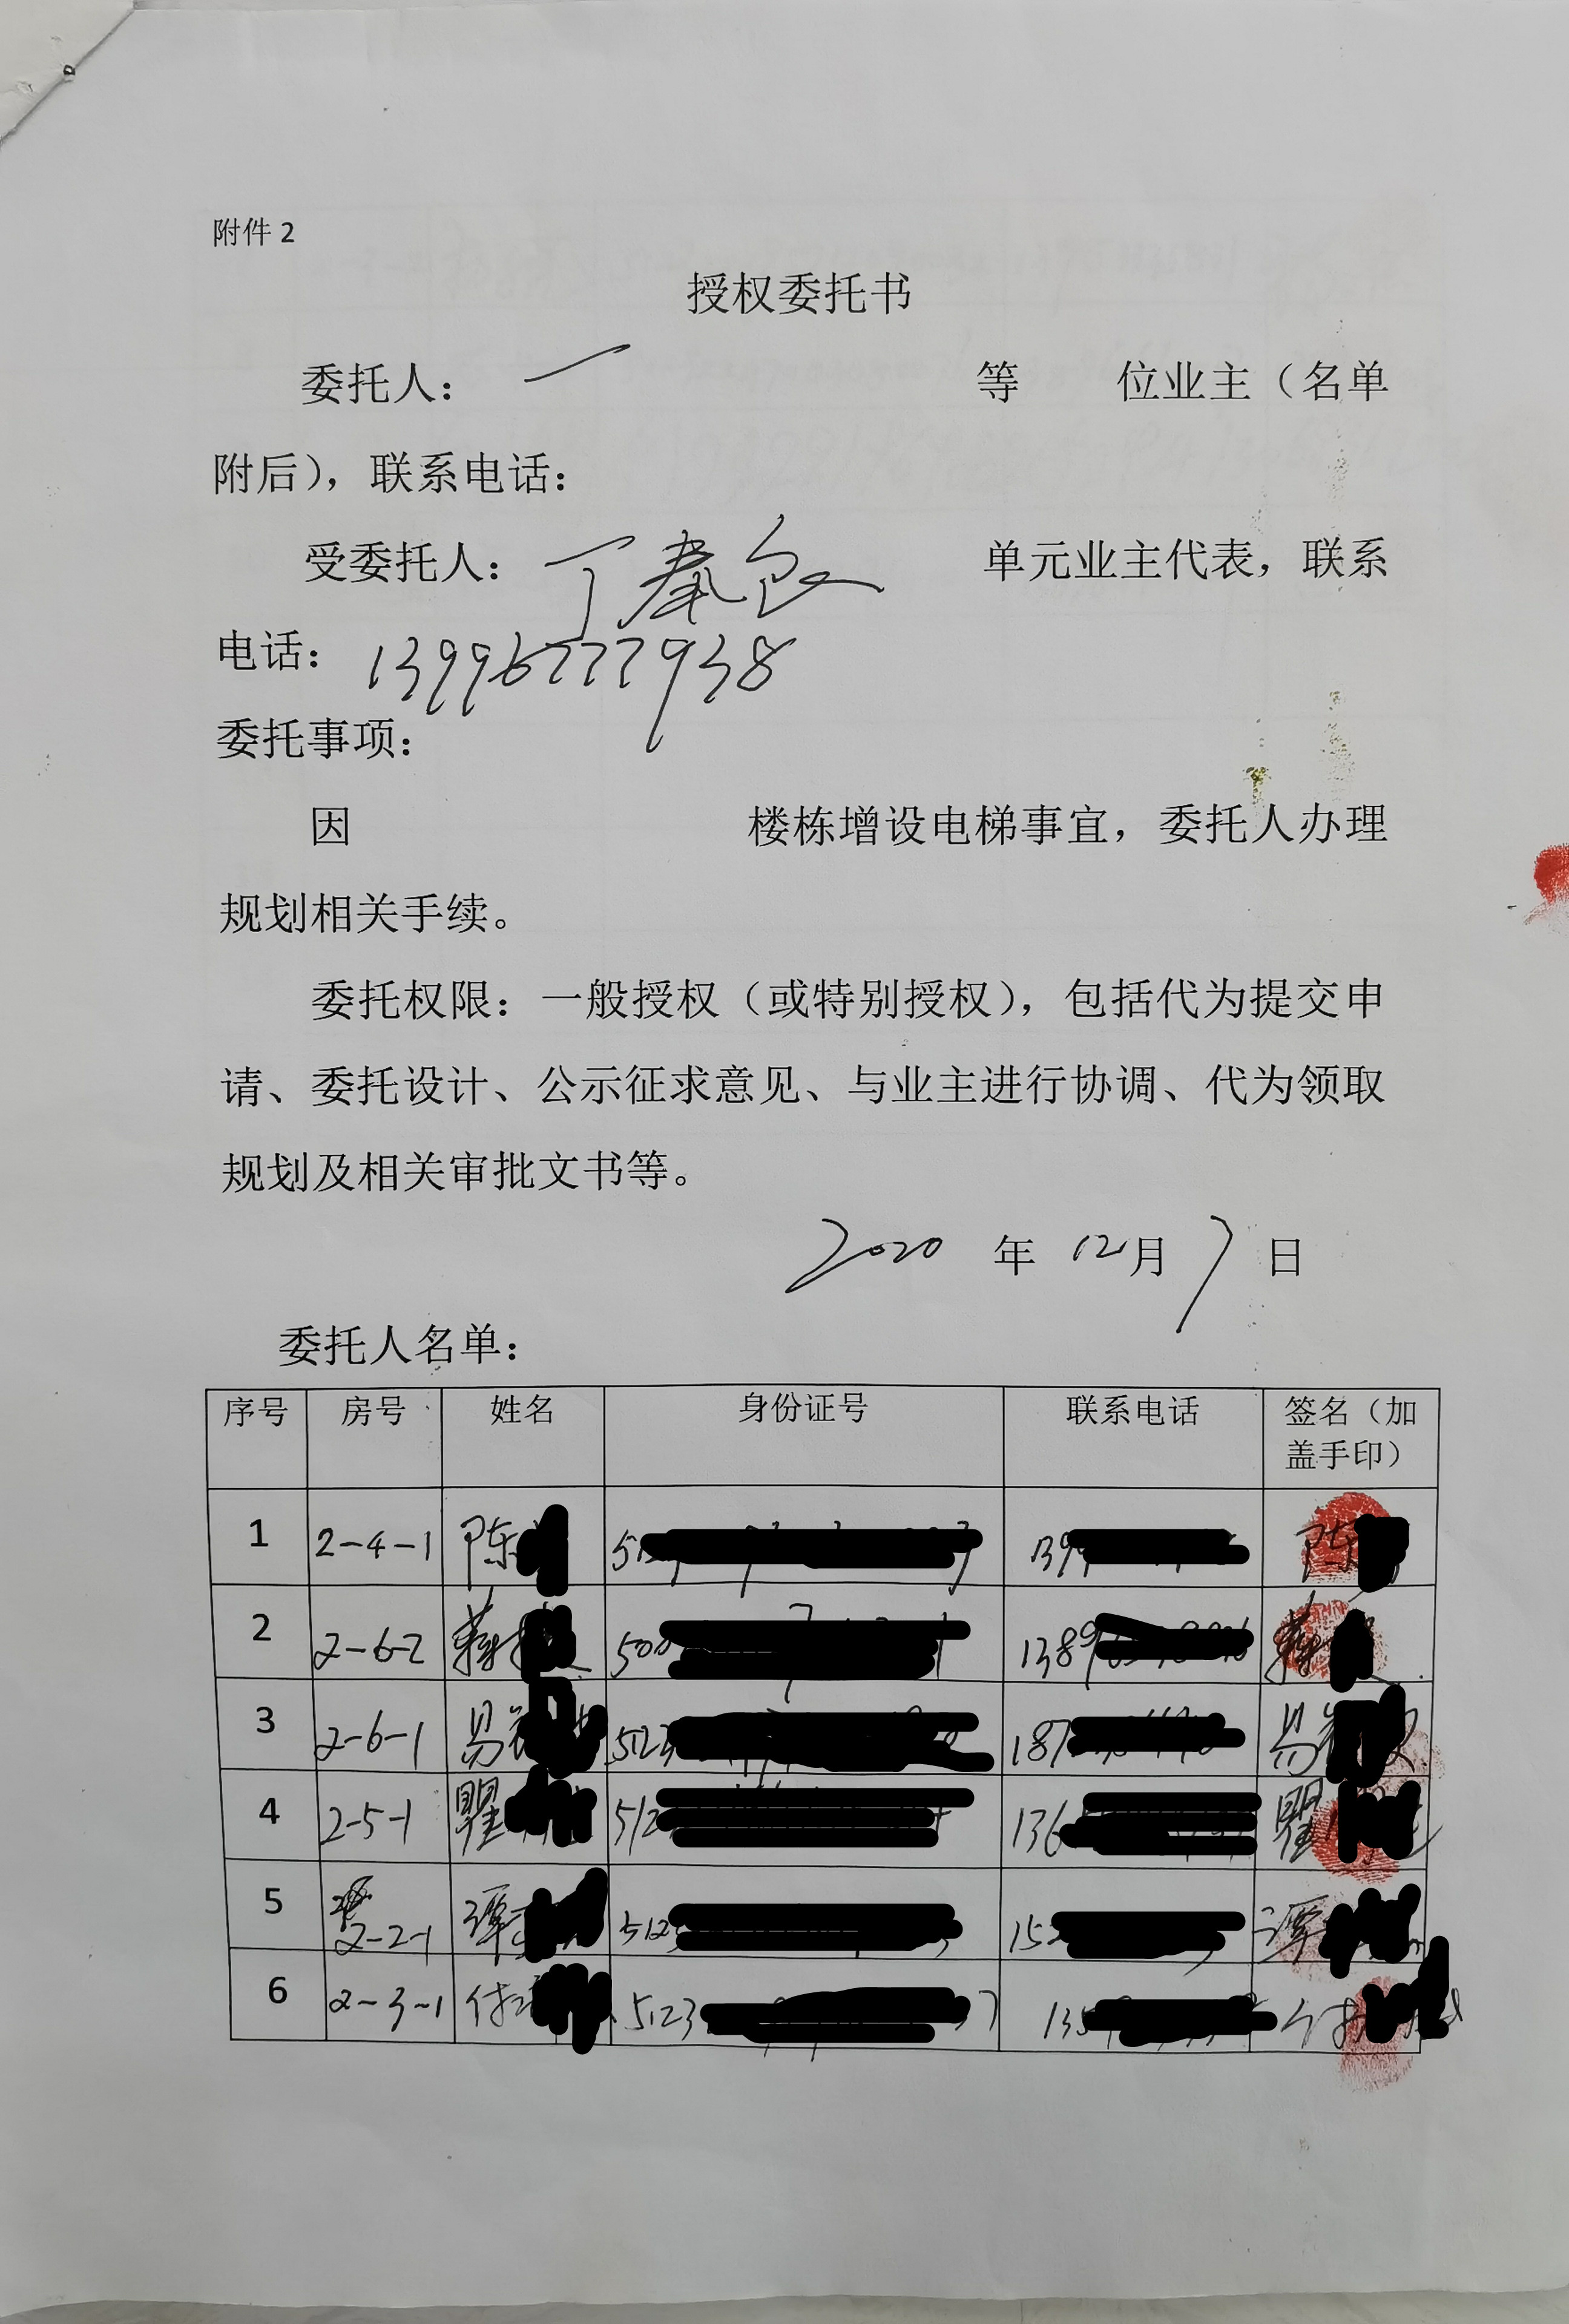 附件 2
授权委托书
委托人： 等 位业主（名单
附后），联系电话：
受委托人：丁 单元业主代表，联系
电话：13996777938
委托事项：
因 楼栋增设电梯事宜，委托人办理
规划相关手续。
委托权限：一般授权（或特别授权），包括代为提交申
请、委托设计、公示征求意见、与业主进行协调、代为领取
规划及相关审批文书等。
2020 年 12 月 7 日
委托人名单：
序号 房号 姓名 身份证号 联系电话 签名（加
盖手印）
1 2-4-1 陈 139 陈
2 2-6-2 500 1389
3 2-6-1 易 5123 187 易
4 2-5-1 瞿 512 136 瞿
5 2-2-1 谭 512 15 谭
6 2-3-1 付 5123 37 135 付